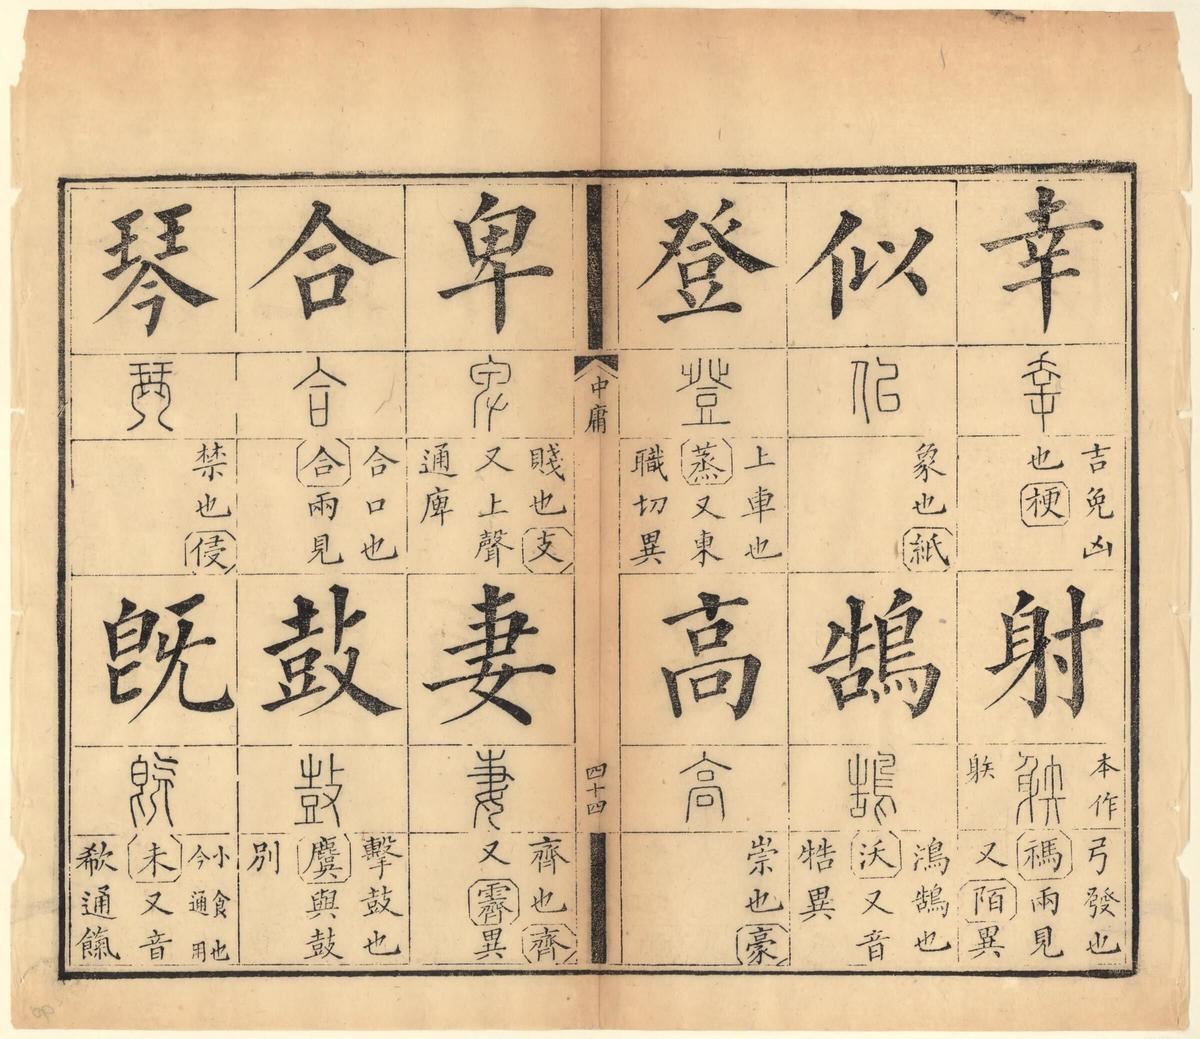 幸
幸
吉免凶
也梗
射
䠶
本作
躲
弓發也
禡兩見
又陌異
似
佀
象也紙
鵠
鵠
鴻鵠也
沃又音
牿異
登
登
上車也
蒸又東
職切異
高
高
崇也豪
中庸
四十四
卑
卑
賤也支
又上聲
通庳
妻
妻
齊也齊
又霽異
合
合
合口也
合兩見
鼓
鼓
擊鼓也
麌與鼓
別
琴
琴
禁也侵
既
既
小食也
今通用
未又音
欷通餼